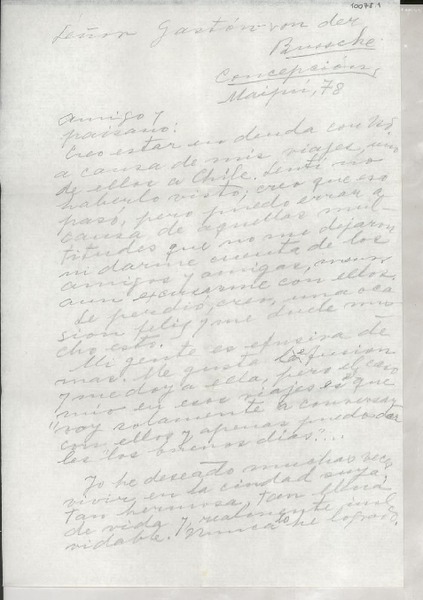 100751
Señor Gastón von der
Bussche
Concepción,
Maipú, 78
Amigo y
paisano:
Creo estar en deuda con Ud
a causa de mis viajes, uno
de ellos a Chile. Sentí no
haberlo visto; creo que eso
pasó, pero puedo errar a
causa de aquellas mul-
titudes que no me dejaron
ni darme cuenta de los
amigos y amigas, menos
aun excusarme con ellos.
Se perdió, creo, una oca-
sion feliz y me duele mu-
cho esto.
Mi gente es efusiva de
mas. Me gusta la efusion
y me doy a ella, pero el caso
mio en esos viajes es que
"voy solamente a conversar
con ellos y apenas puedo dar
les los buenos días"...
Yo he deseado muchas veces
vivir en la ciudad suya
tan hermosa, tan llena
de vida y realmente inol
vidable. Nunca lo he logrado